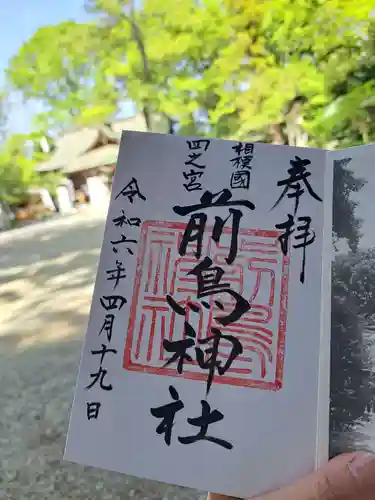 奉拝
相模國
四之宮
前鳥神社
令和六年四月十九日